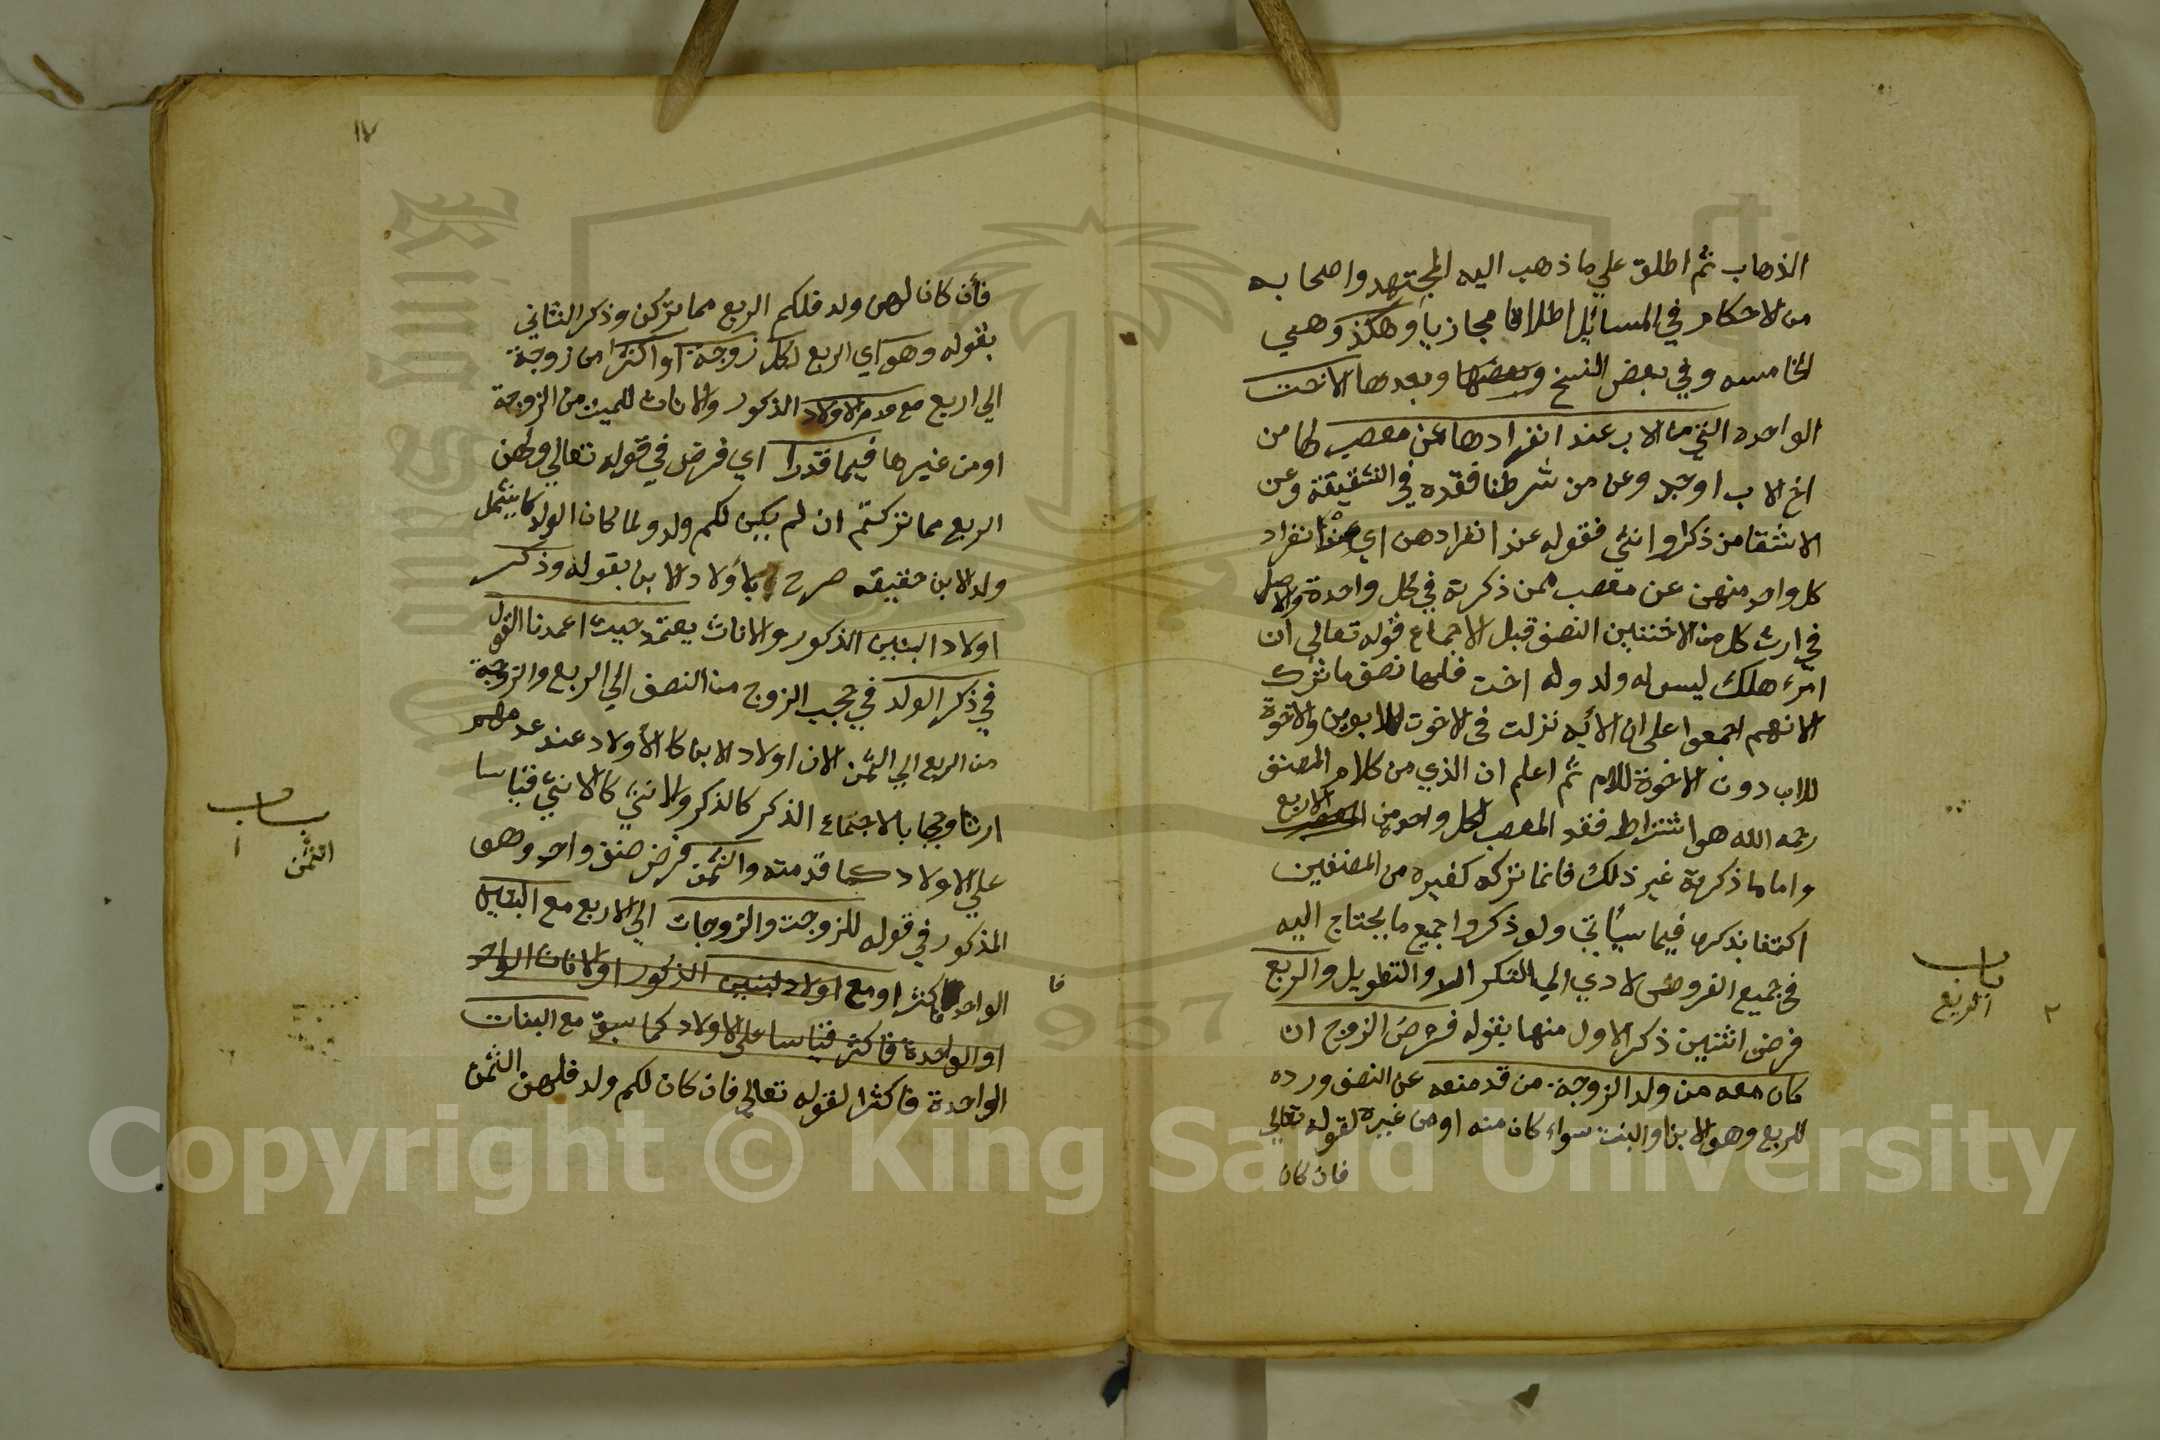 الذهاب ثم اطلق علي ما ذهب اليه المجتهد واصحابه
من الاحكام في المسائل اطلاقا مجازيا وهكذ وهي
الخامسه وفي بعض النسخ وبعضها وبعدها الاخت
الواحده التي من الاب عند انفرادها عن معصب لها من
اخ لاب اوجد وعن من شرطنا فقده في الشقيقة وعن
الاشقا من ذكر او انثي فقوله عند انفرادهن اي عند انفراد
كل واحد منهن عن معصب ممن ذكرته في كل واحدة والاصل
في ارث كل من الاختين النصف قبل الاجماع قوله تعالي ان
امرء هلك ليس له ولد وله اخت فلها نصف ما ترك
لانهم اجمعوا على ان الايه نزلت في الاخوت للابوين والاخوة
للاب دون الاخوة للام ثم اعلم ان الذي من كلام المصنف
رحمه الله هو اشتراط فقد المعصب لكل واحد من الاربع
واما ما ذكرته غير ذلك فانما تركه كغيره من المصنفين
اكتفا بذكره فيما سيأتي ولو ذكروا جميع ما يحتاج اليه
في جميع الفروض لادي الي التكرار والتطويل والربع
فرض اثنين ذكر الاول منها بقوله فرض الزوج ان
كان معه من ولد الزوجة من قد منعه عن النصف ورده
للربع وهو الابن والبنت سواء كان منه او من غيره لقوله تعالي
فان كان
باب
الربع
٢
١٧
فأن كان لهن ولد فلكم الربع مما تركن وذكر الثاني
بقوله وهو اي الربع لكل زوجة او اكثر من زوجة
الي اربع مع عدم الاولاد الذكور والاناث للميت من الزوجة
او من غيرها فيما قدرا اي فرض في قوله تعالي ولهن
الربع مما تركتم ان لم يكن لكم ولد ولما كان الولد كا يشمل
ولد الابن حقيقه صرح بأولاد الابن بقوله وذكر
اولاد البنين الذكور والاناث يعتمد حيث اعمدنا القول
في ذكر الولد في حجب الزوج من النصف الي الربع والزوجة
من الربع الي الثمن لان اولاد الابن كالأولاد عند عدمهم
ارثا وحجبا بالاجماع الذكر كالذكر والانثي كالانثي قياسا
علي الاولاد كما قدمته والثمن فرض صنف واحد وهو
المذكور في قوله للزوجة والزوجات الي الاربع مع البنين
الواحد فاكثر او مع اولاد البنين الذكور او الاناث الواحد
او الواحدة فاكثر قياسا علي الاولاد كما سبق مع البنات
الواحدة فاكثر لقوله تعالي فان كان لكم ولد فلهن الثمن
فا
باب
الثمن
١
Copyright © King Saud University
King Saud
1957